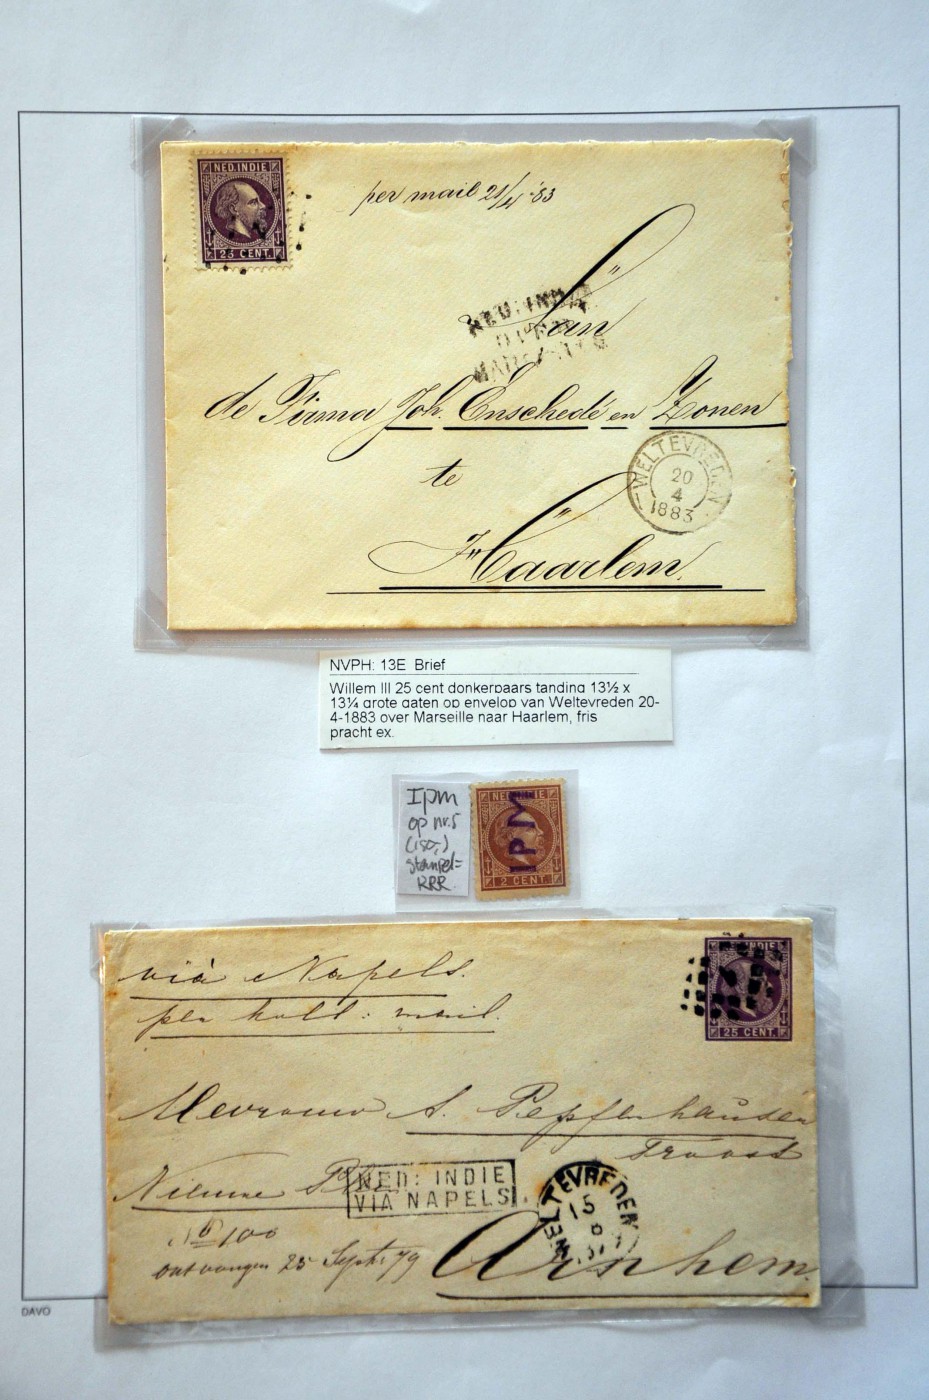 NED. INDIE
25 CENT.
per mail 21/4 '83
NED: INDIE
OVER
MARSEILLE
Aan
de Firma Joh. Enschedé en Zonen
te
Haarlem.
WELTEVREDEN
20
4
1883
NVPH: 13E Brief
Willem III 25 cent donkerpaars tanding 13½ x
13¼ grote gaten op envelop van Weltevreden 20-
4-1883 over Marseille naar Haarlem, fris
pracht ex.
Ipm
op nr. 5
(150,-)
stempel=
RRR
NED. INDIE
IPM
2 CENT.
via Napels.
per holl: mail.
NED. INDIE
25 CENT.
Mevrouw A. Pepfenhauser
Troost
Nieuwe
NED: INDIE
VIA NAPELS
WELTEVREDEN
15
8
No 100
ontvangen 25 Sept: 79
Arnhem.
DAVO